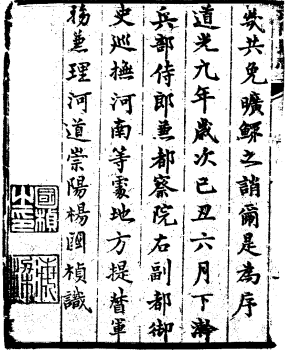 幾共免曠鰥之誚爾是為序
道光九年歲次己丑六月下澣
兵部侍郎兼都察院右副都御
史巡撫河南等處地方提督軍
務兼理河道崇陽楊國楨識
國楨
之印
海梁